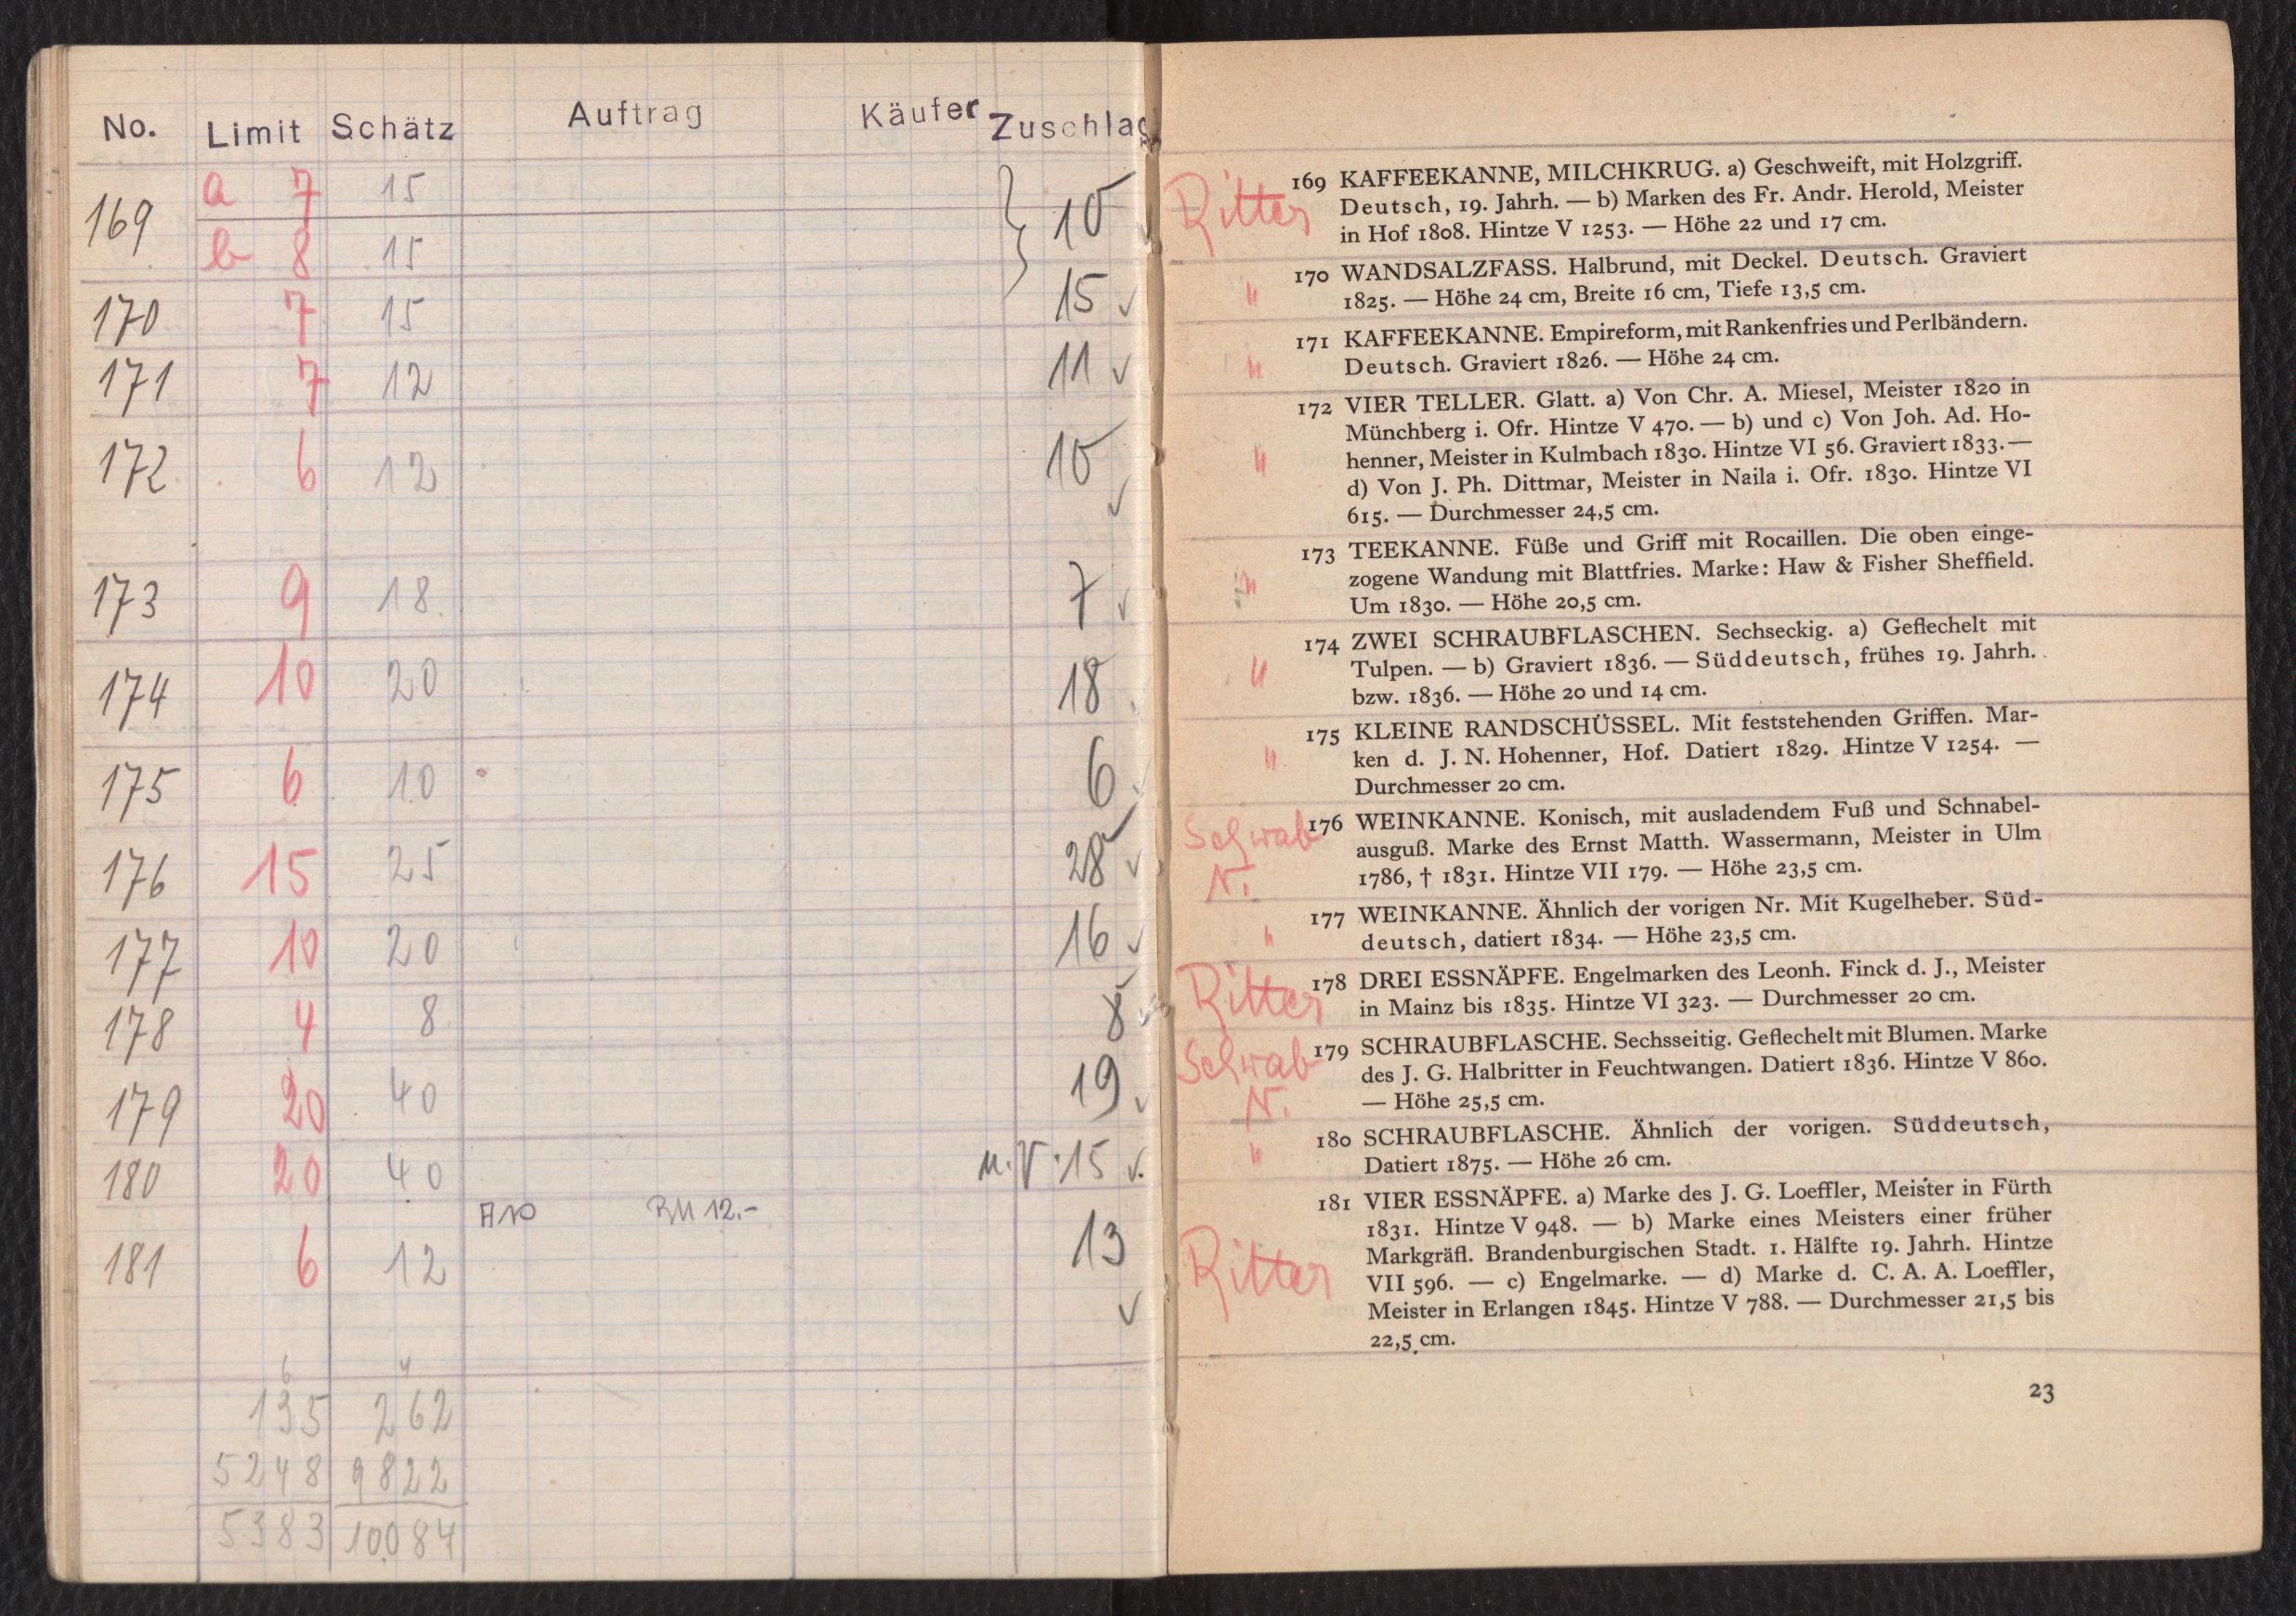 No. Limit Schätz Auftrag Käufer Zuschlag
169 a 7 15 10
b 8 15
170 7 15 15 ✓
171 7 12 11 ✓
172 6 12 10 ✓
173 9 18 7 ✓
174 10 20 18
175 6 10 6
176 15 25 28 ✓
177 10 20 16 ✓
178 4 8 8 ✓
179 20 40 19 ✓
180 20 40 u.V. 15 ✓
A10 RM 12.-
181 6 12 13 ✓
6 4
135 262
5248 9822
5383 10084
Ritter 169 KAFFEEKANNE, MILCHKRUG. a) Geschweift, mit Holzgriff.
Deutsch, 19. Jahrh. — b) Marken des Fr. Andr. Herold, Meister
in Hof 1808. Hintze V 1253. — Höhe 22 und 17 cm.
" 170 WANDSALZFASS. Halbrund, mit Deckel. Deutsch. Graviert
1825. — Höhe 24 cm, Breite 16 cm, Tiefe 13,5 cm.
" 171 KAFFEEKANNE. Empireform, mit Rankenfries und Perlbändern.
Deutsch. Graviert 1826. — Höhe 24 cm.
" 172 VIER TELLER. Glatt. a) Von Chr. A. Miesel, Meister 1820 in
Münchberg i. Ofr. Hintze V 470. — b) und c) Von Joh. Ad. Ho-
henner, Meister in Kulmbach 1830. Hintze VI 56. Graviert 1833. —
d) Von J. Ph. Dittmar, Meister in Naila i. Ofr. 1830. Hintze VI
615. — Durchmesser 24,5 cm.
" 173 TEEKANNE. Füße und Griff mit Rocaillen. Die oben einge-
zogene Wandung mit Blattfries. Marke: Haw & Fisher Sheffield.
Um 1830. — Höhe 20,5 cm.
" 174 ZWEI SCHRAUBFLASCHEN. Sechseckig. a) Geflechelt mit
Tulpen. — b) Graviert 1836. — Süddeutsch, frühes 19. Jahrh.
bzw. 1836. — Höhe 20 und 14 cm.
" 175 KLEINE RANDSCHÜSSEL. Mit feststehenden Griffen. Mar-
ken d. J. N. Hohenner, Hof. Datiert 1829. Hintze V 1254. —
Durchmesser 20 cm.
Schwab N. 176 WEINKANNE. Konisch, mit ausladendem Fuß und Schnabel-
ausguß. Marke des Ernst Matth. Wassermann, Meister in Ulm
1786, † 1831. Hintze VII 179. — Höhe 23,5 cm.
" 177 WEINKANNE. Ähnlich der vorigen Nr. Mit Kugelheber. Süd-
deutsch, datiert 1834. — Höhe 23,5 cm.
Ritter 178 DREI ESSNÄPFE. Engelmarken des Leonh. Finck d. J., Meister
in Mainz bis 1835. Hintze VI 323. — Durchmesser 20 cm.
Schwab N. 179 SCHRAUBFLASCHE. Sechsseitig. Geflechelt mit Blumen. Marke
des J. G. Halbritter in Feuchtwangen. Datiert 1836. Hintze V 860.
— Höhe 25,5 cm.
" 180 SCHRAUBFLASCHE. Ähnlich der vorigen. Süddeutsch,
Datiert 1875. — Höhe 26 cm.
Ritter 181 VIER ESSNÄPFE. a) Marke des J. G. Loeffler, Meister in Fürth
1831. Hintze V 948. — b) Marke eines Meisters einer früher
Markgräfl. Brandenburgischen Stadt. 1. Hälfte 19. Jahrh. Hintze
VII 596. — c) Engelmarke. — d) Marke d. C. A. A. Loeffler,
Meister in Erlangen 1845. Hintze V 788. — Durchmesser 21,5 bis
22,5 cm.
23